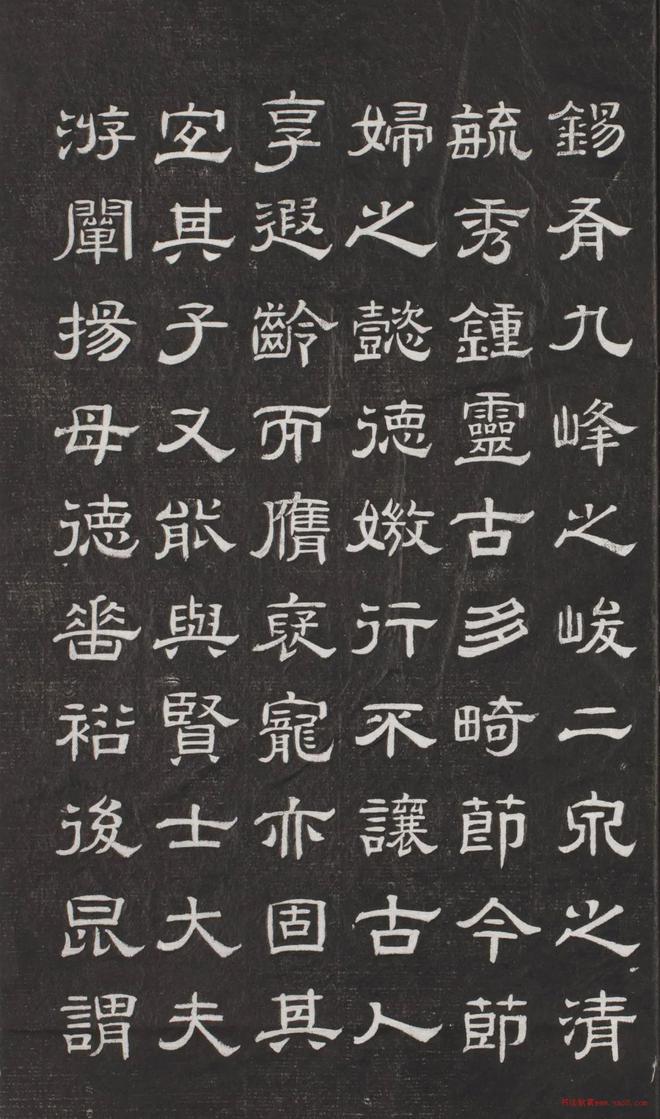 錫有九峰之峻二泉之清
毓秀鍾靈古多畸節今節
婦之懿德媺行不讓古人
享遐齡而膺褎寵亦固其
宜其子又能與賢士大夫
游闡揚母德垂裕後昆謂